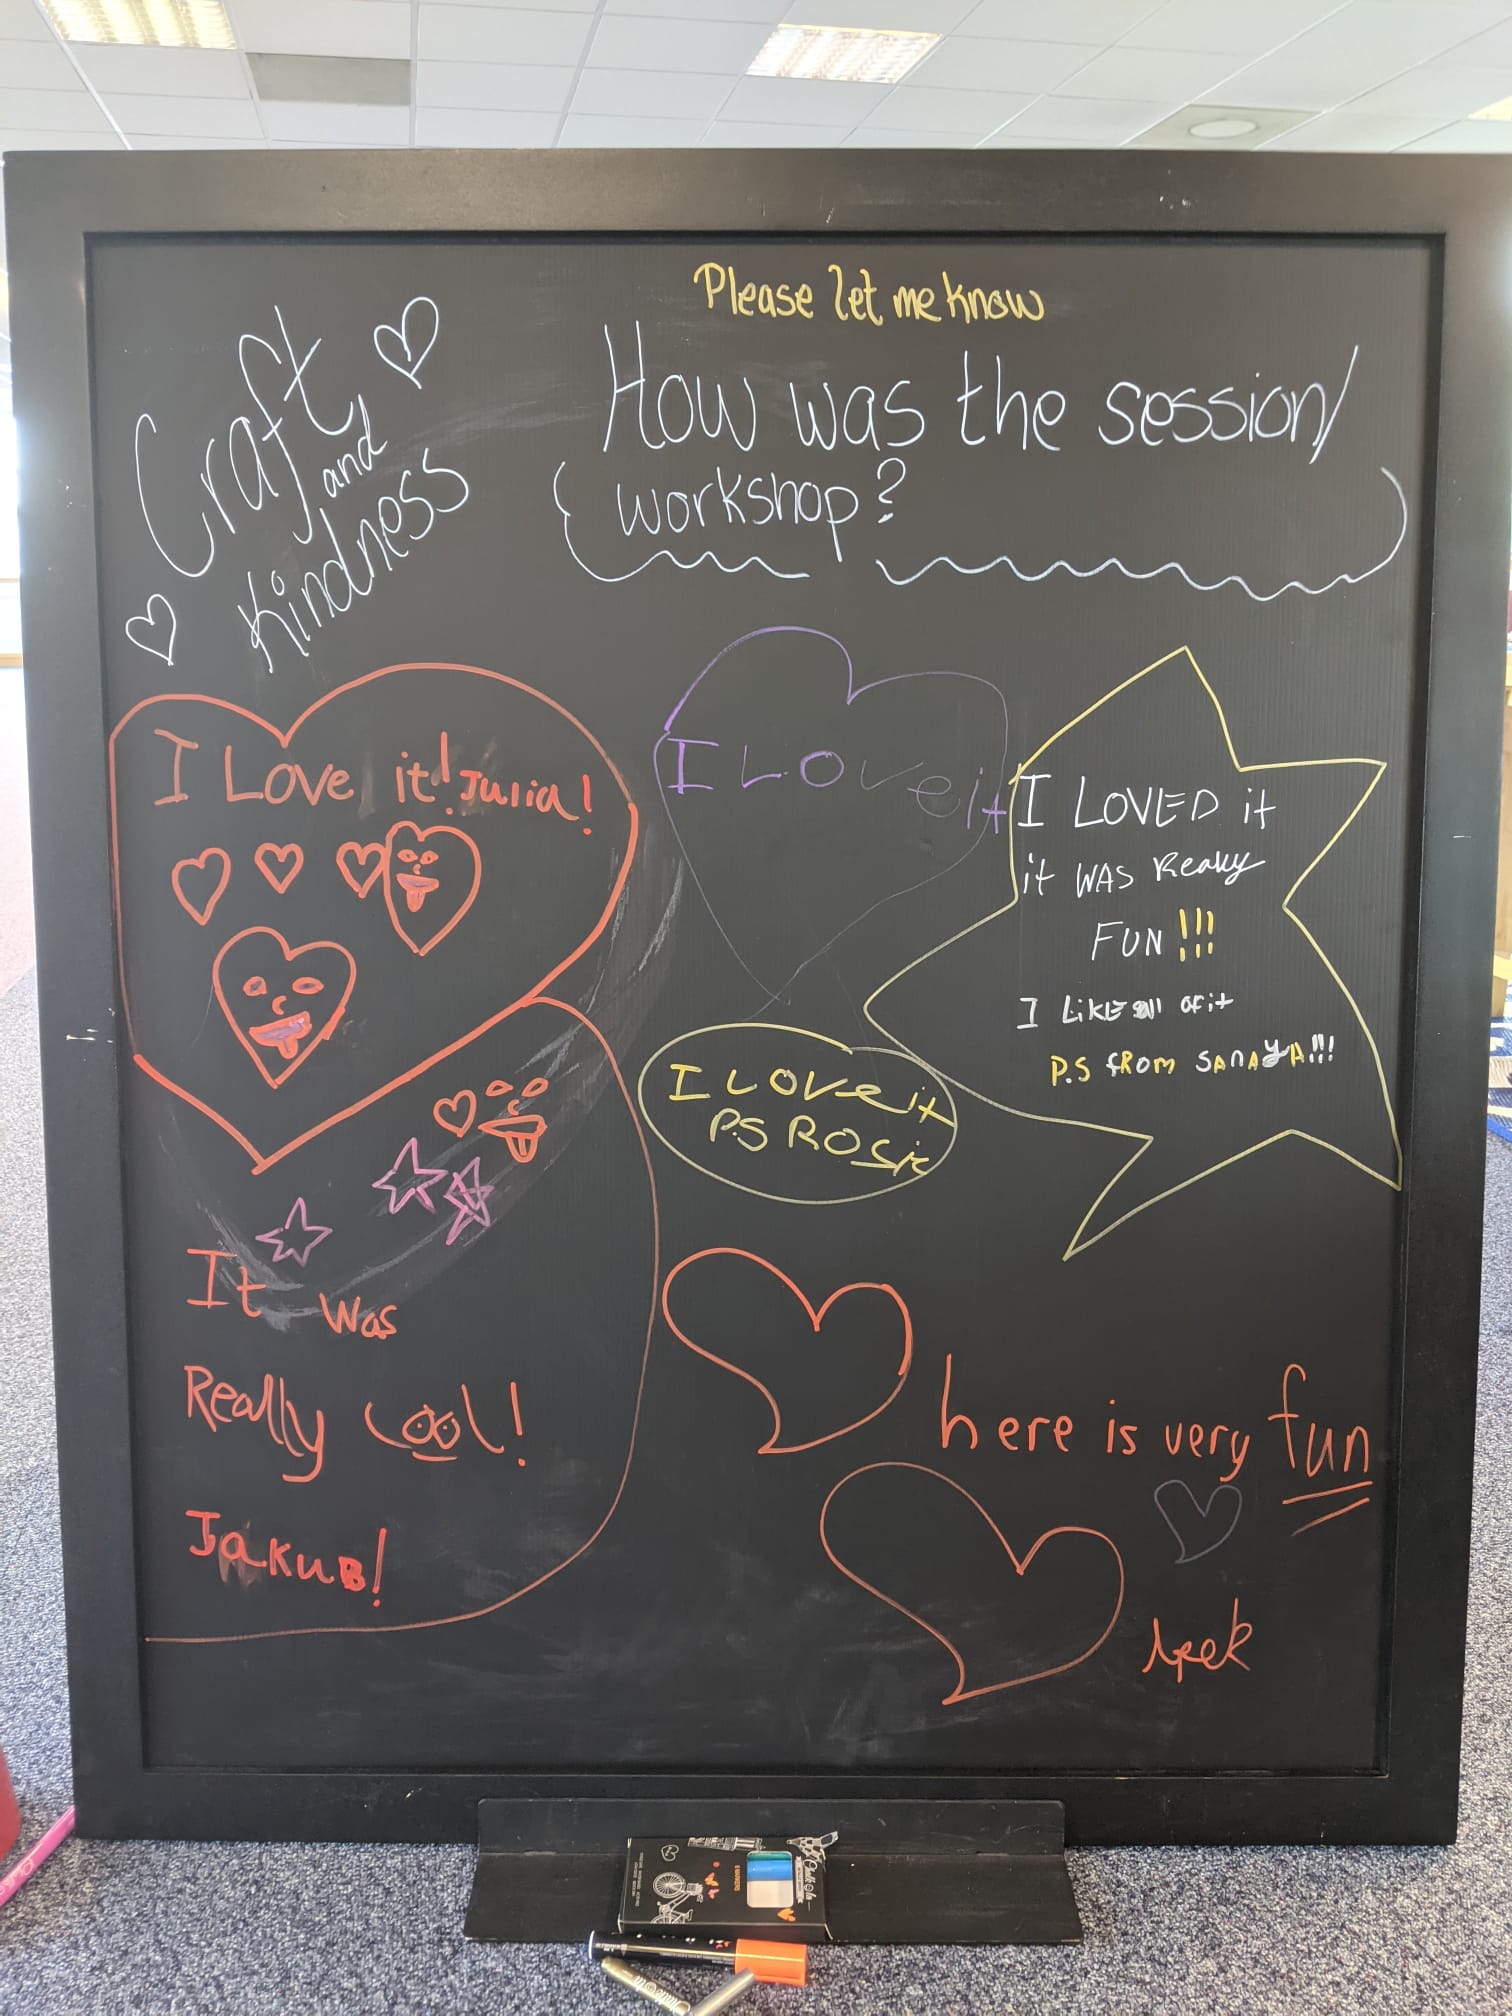 Please let me know
Craft
and
Kindness
How was the session/
workshop?
I Love it! Julia!
I Love it
I LOVED it
it WAS Really
FUN!!!
I LiKE all of it
P.S fROM SANAYA!!!
I LOVe it
P.S ROSie
It was
Really Cool!
JAKUB!
here is very fun